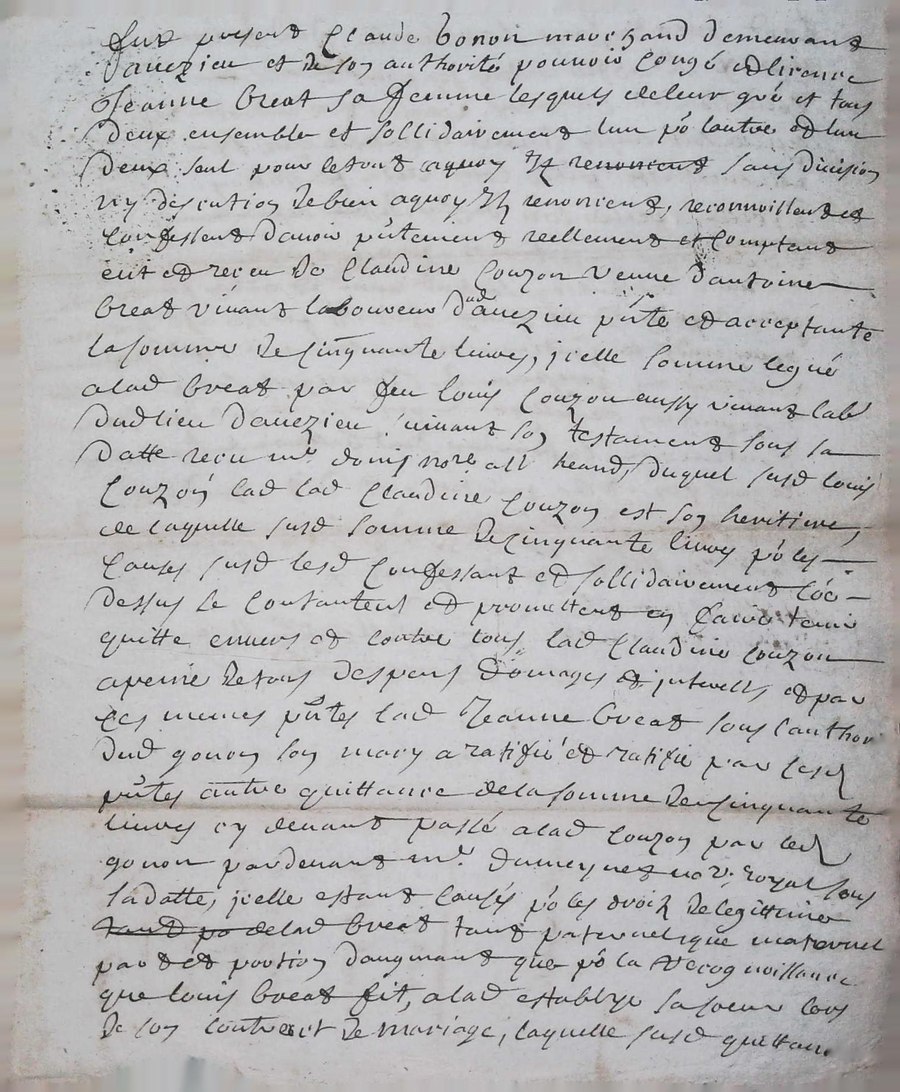 fut present Claude Gonon marchand demeurant
d'auezieu et de son authorité pouuoir congé et licence
Jeanne breat sa femme lesquels de leur gré et tous
deux ensemble et sollidairement lun po' lautre et lun
deux seul pour le tout aquoy ilz renoncent sans diuision
ny discution de bien aquoy ilz renoncent, reconnoissent et
confessent dauoir pñtement reellement et comptant
eut et receu de Claudine Couzon veuue d'antoine
breat viuant laboureur dud auezieu pñte et acceptante
la somme de cinquante liures, jcelle somme legué
a lad breat par feu louis Couzon aussy viuant lab'
dud lieu d'auezieu suiuant son testament sous sa
datte receu me not duquel susd louis
Couzon lad lad Claudine Couzon est son heritiere,
de laquelle susd somme de cinquante liures po' les
causes susd lesd confessant et sollidairement co'e
dessus se contantent et promettent en faire tenir
quitte enuers et contre tous lad Claudine Couzon
a peine de tous despens domages et interests, et par
ces memes pñtes lad Jeanne breat sous l'author
dud gonon son mary a ratifié et ratifie par lesd
pñtes autre quittance de la somme de cinquante
liures cy deuant passé a lad Couzon par led
gonon pardeuant me Dumeynet nore royal sous
sa datte, jcelle estant causés po' les droiz de legittime
tant po de lad breat tant paternel que maternel
part et portion daugmant que po' la recognoissance
que louis breat fit, a lad sa soeur lors
de son contract de mariage, laquelle susd quittan